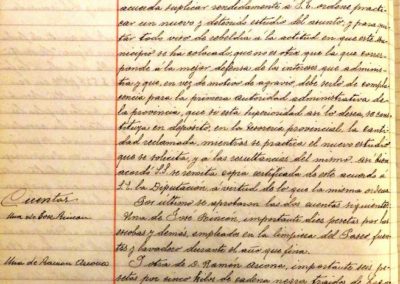 acuerda suplicar rendidamente á S.E. ordene practi-
car un nuevo y detenido estudio del asunto, y para qui-
tar todo viso de rebeldía á la actitud en que este Mu-
nicipio se ha colocado, que no es otra, que la que corres-
ponde á la mejor defensa de los intereses que adminis-
tra y que, en vez de motivo de agravio, debe serlo de compla-
cencia para la primera autoridad administrativa de
la provincia, que si esta Superioridad así lo desea, se cons-
tituya en depósito, en la tesorería provincial, la canti-
dad reclamada mientras se practica el nuevo estudio
que se solicita, y á las resultancias del mismo
acordó S.S. se remita copia certificada de este acuerdo á
la Diputación á virtud de lo que la misma ordena
Cuentas
Por último se aprobaron las dos cuentas siguientes:
Una de Jose Rincon
Una de Jose Rincón, importante diez pesetas por las
escobas y demás, empleado en la limpieza del Paseo, fuen-
tes y lavadero durante el año que fina.
Una de Ramon Arcona
I otra de D. Ramón Arcona, importante seis pe-
setas por cinco kilos de cadena negra